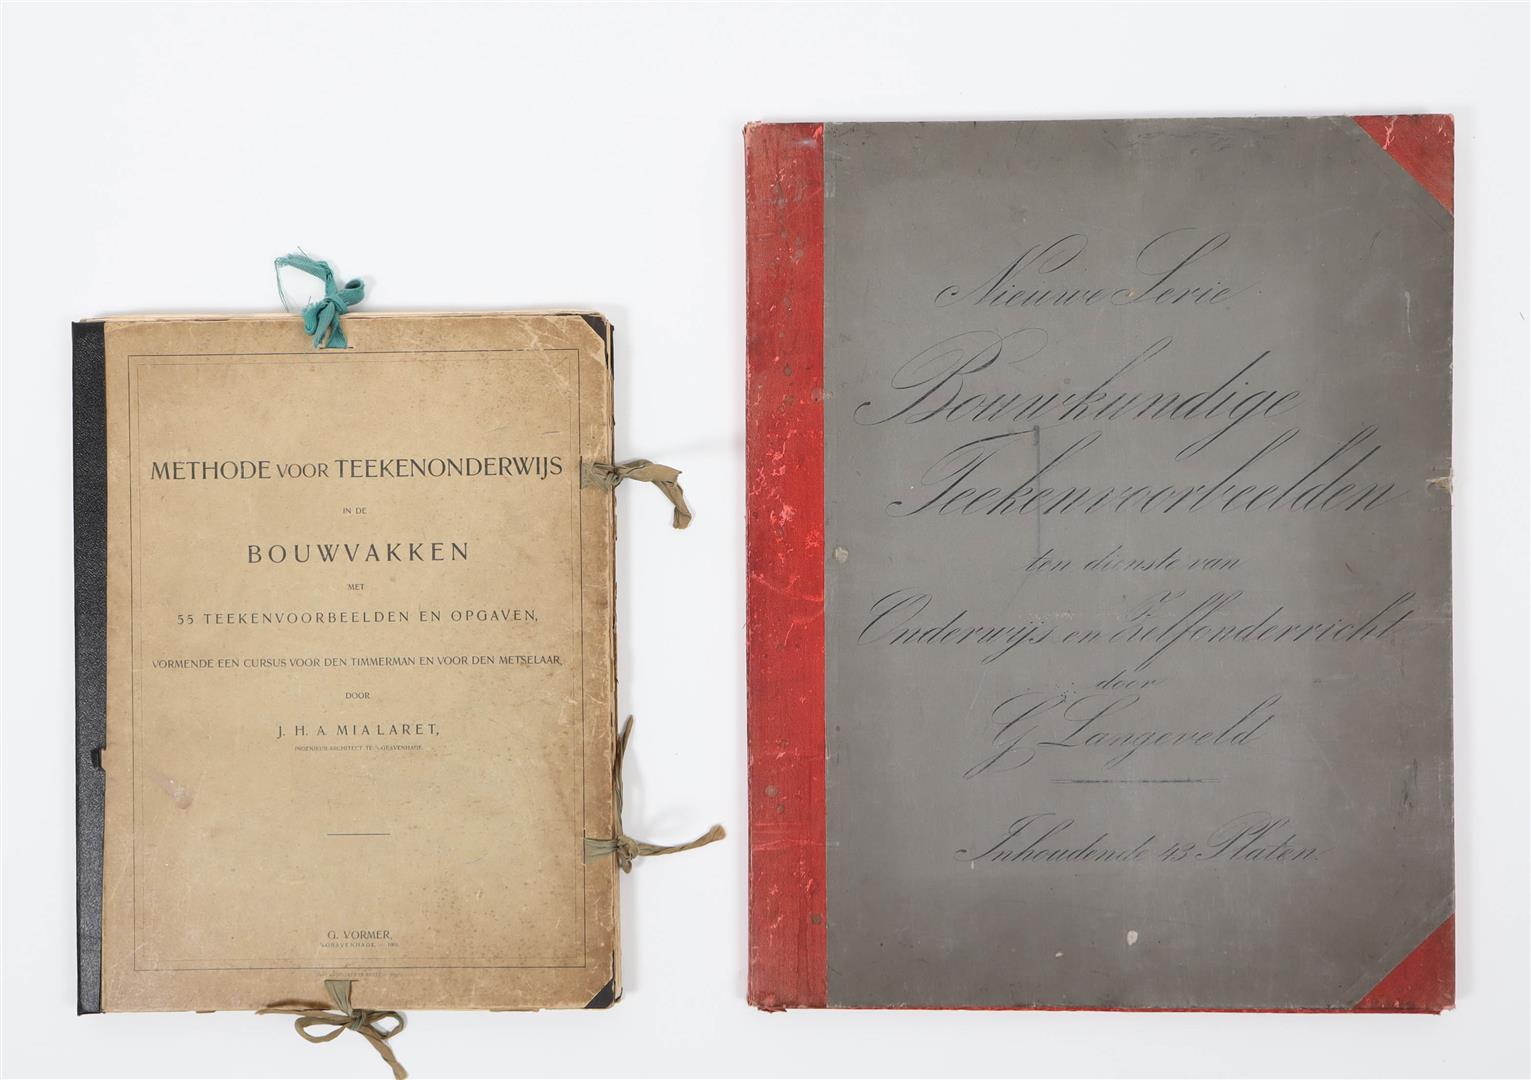 METHODE VOOR TEEKENONDERWIJS
IN DE
BOUWVAKKEN
MET
55 TEEKENVOORBEELDEN EN OPGAVEN,
VORMENDE EEN CURSUS VOOR DEN TIMMERMAN EN VOOR DEN METSELAAR,
DOOR
J. H. A. MIALARET,
INGENIEUR-ARCHITECT TE 'S-GRAVENHAGE.
G. VORMER,
'S-GRAVENHAGE. —
Nieuwe Serie
Bouwkundige
Teekenvoorbeelden
ten dienste van
Onderwijs en Zelfonderricht
door
G. Langeveld
Inhoudende 43 Platen.